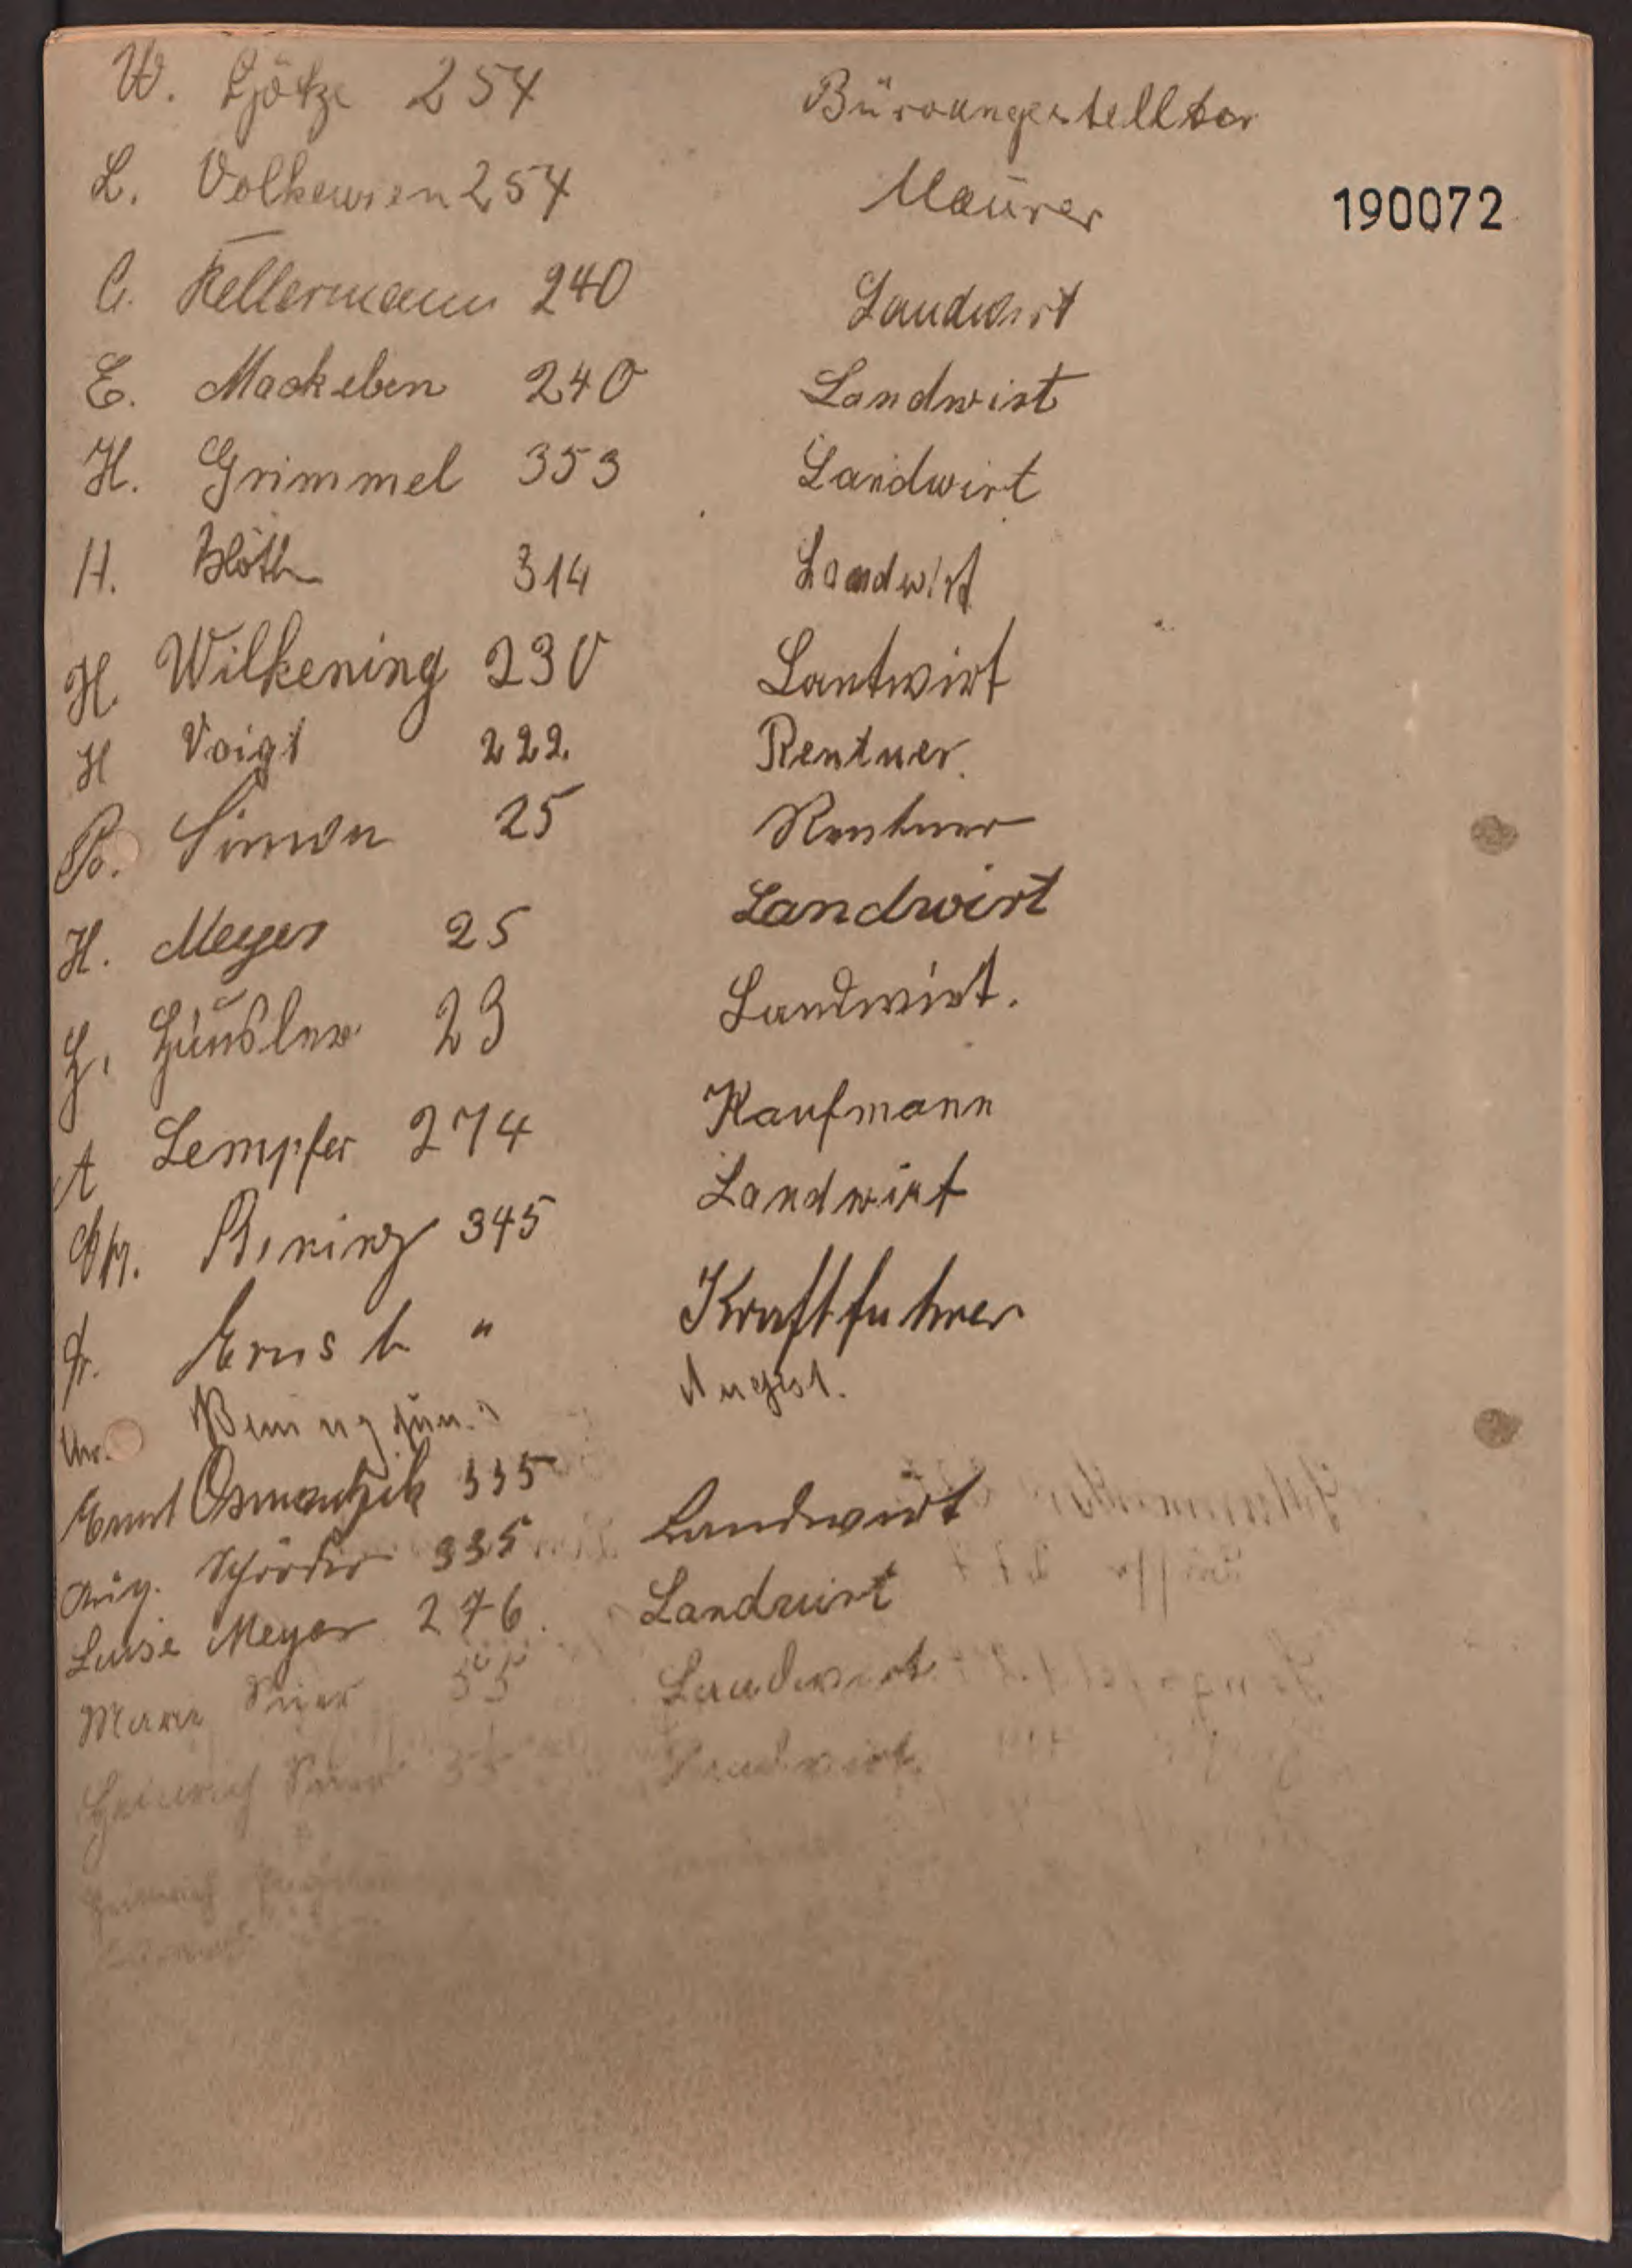 W. Götze 254 Büroangestellter
L. Volkewien 254 Maurer
190072
C. Kellermann 240 Landwirt
E. Mackeben 240 Landwirt
H. Grimmel 353 Landwirt
H. 314 Landwirt
H. Wilkening 230 Lantwirt
H Voigt 222. Rentner.
P. Simon 25 Rentner
H. Meyer 25 Landwirt
H. Häusler 23 Landwirt.
A Lempfer 274 Kaufmann
Bening 345 Landwirt
Fr. Ernst " Kraftfuhrer
Bening jun. " Angest.
Ernst Osmantzik 335 Landwirt
Aug. Schröder 335 Landwirt
Luise Meyer 276. Landwirt.
Marie 55
Heinrich Landwirt.
Heinrich